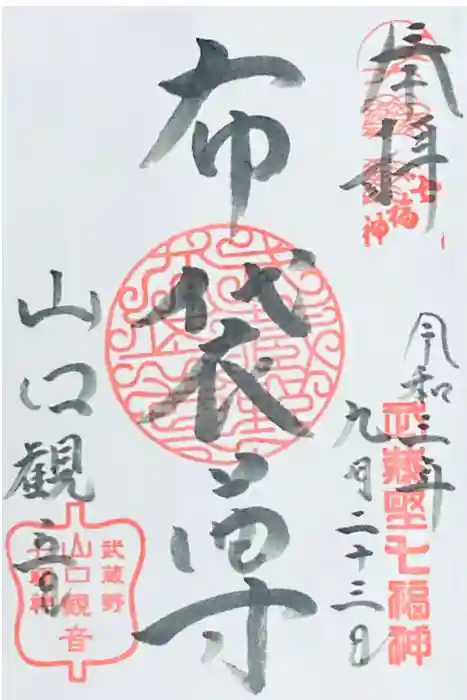 奉拝
七福神
令和三年
九月二十三日
武蔵野七福神
布袋尊
山口観音
武蔵野
山口観音